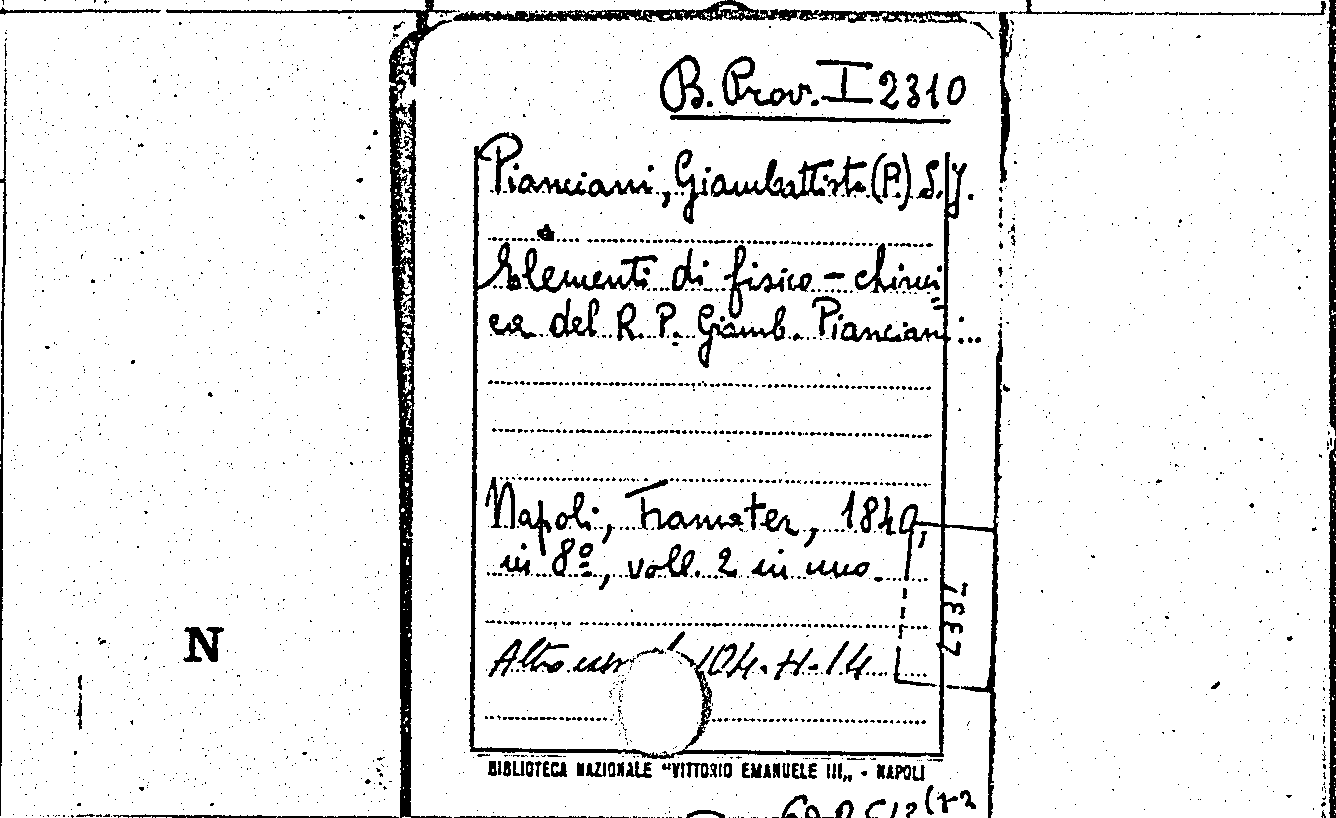 B. Prov. I 2310
Pianciani, Giambattista (P.) S.J.
Elementi di fisico-chimi=
ca del R. P. Giamb. Pianciani...
Napoli, Tramater, 1840,
in 8º, voll. 2 in uno.
Altro 104-H-14
N
BIBLIOTECA NAZIONALE "VITTORIO EMANUELE III„ - NAPOLI